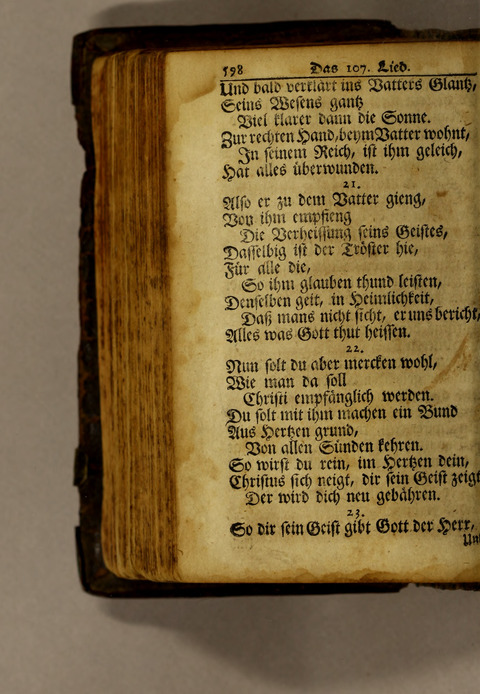 598 Das 107. Lied.
Und bald verklärt ins Vatters Glantz,
Seins Wesens gantz
Viel klarer dann die Sonne.
Zur rechten Hand, beym Vatter wohnt,
In seinem Reich, ist ihm geleich,
Hat alles überwunden.
21.
Also er zu dem Vatter gieng,
Von ihm empfieng
Die Verheissung seins Geistes,
Dasselbig ist der Tröster hie,
Für alle die,
So ihm glauben thund leisten,
Denselben geit, in Heimlichkeit,
Daß mans nicht sicht, er uns bericht,
Alles was Gott thut heissen.
22.
Nun solt du aber mercken wohl,
Wie man da soll
Christi empfänglich werden.
Du solt mit ihm machen ein Bund
Aus Hertzen grund,
Von allen Sünden kehren.
So wirst du rein, im Hertzen dein,
Christus sich neigt, dir sein Geist zeigt
Der wird dich neu gebähren.
23.
So dir sein Geist gibt Gott der Herr,
Und